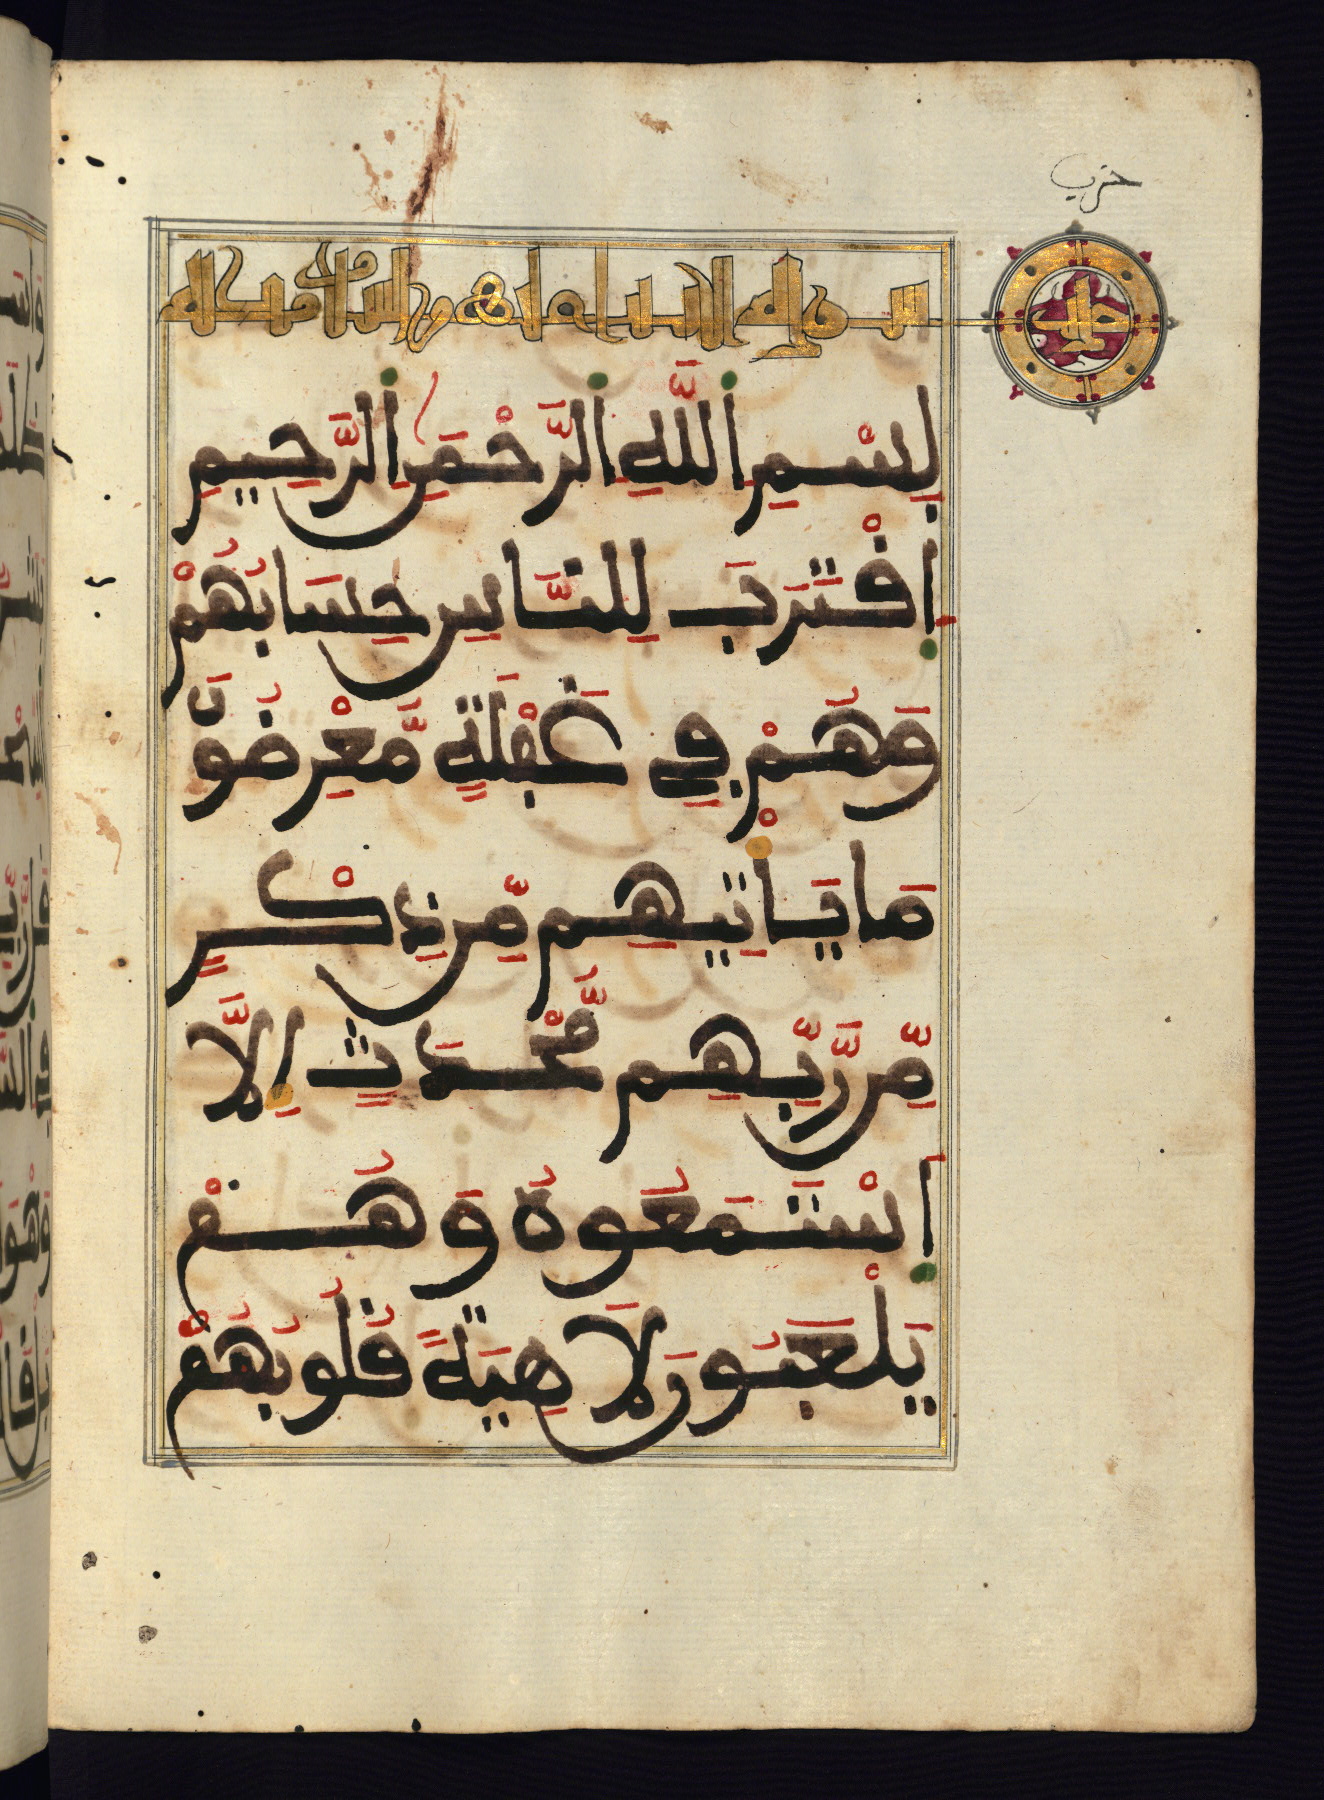 حزب
سورة الانبيا عليهم السلام مكية
حزب
بِسْمِ اللَّهِ الرَّحْمَٰنِ الرَّحِيمِ
اِقْتَرَبَ لِلنَّاسِ حِسَابُهُمْ
وَهُمْ فِي غَفْلَةٍ مُّعْرِضُونَ
مَا يَأْتِيهِم مِّن ذِكْرٍ
مِّن رَّبِّهِم مُّحْدَثٍ إِلَّا
اسْتَمَعُوهُ وَهُمْ
يَلْعَبُونَ لَاهِيَةً قُلُوبُهُمْ